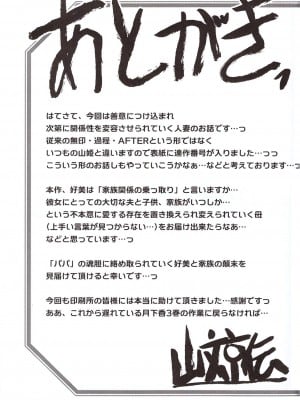 あとがきっ
はてさて、今回は善意につけ込まれ
次第に関係性を変容させられていく人妻のお話です…っ
従来の無印・過程・AFTERという形ではなく
いつもの山姫と違いますので表紙に連作番号が入りました…っっ
こういう形のお話しもやっていこうかなぁ…などと考えております…っ
本作、好美は「家族関係の乗っ取り」と言いますか…
彼女にとっての大切な夫と子供、家族がいつしか…
という不本意に愛する存在を置き換えられ変えられていく母
(上手い言葉が見つからない…)をお届け出来たらなぁ…
などと思っています…っ
「パパ」の魂胆に絡め取られていく好美と家族の顛末を
見届けて頂けると幸いです…っ
今回も印刷所の皆様には本当に助けて頂きました…感謝ですっ
ああ、これから遅れている月下香3巻の作業に戻らなければ…
山文京伝